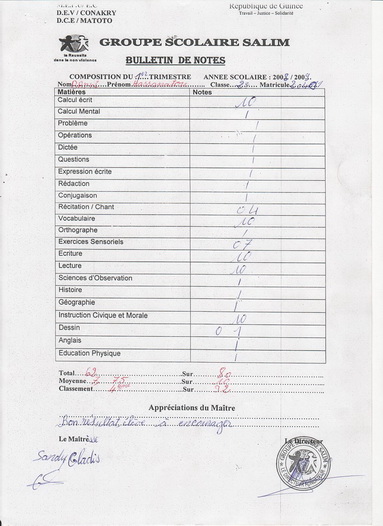 République de Guinée
Travail - Justice - Solidarité
D.E.V / CONAKRY
D.C.E / MATOTO
GROUPE SCOLAIRE SALIM
la Réussite
dans la non violence
BULLETIN DE NOTES
COMPOSITION DU 1er TRIMESTRE ANNEE SCOLAIRE : 200 / 200
Nom Prénom Classe Matricule
Matières Notes
Calcul écrit 10
Calcul Mental
Problème
Opérations
Dictée
Questions
Expression écrite
Rédaction
Conjugaison
Récitation / Chant 04
Vocabulaire 10
Orthographe
Exercices Sensoriels 07
Ecriture 10
Lecture 10
Sciences d'Observation
Histoire
Géographie
Instruction Civique et Morale 10
Dessin 0 1
Anglais
Education Physique
Total 62 Sur 80
Moyenne Sur
Classement Sur
Appréciations du Maître
Bon résultat, élève à encourager
Le Maître Le Directeur
Sandy
GROUPE SCOLAIRE SALIM